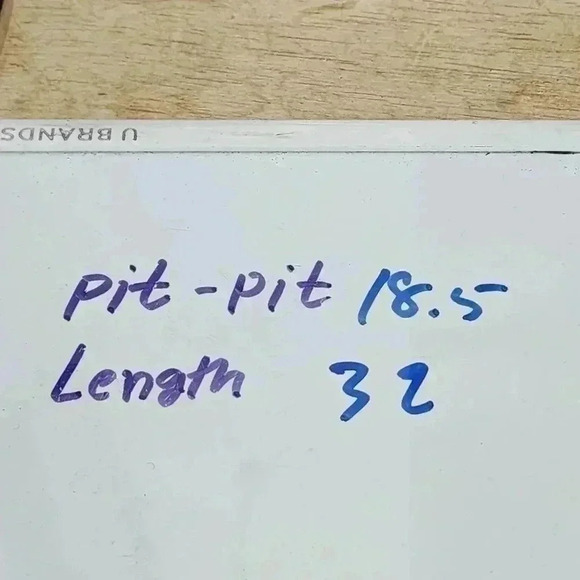 U BRANDS
pit-pit 18.5
Length 32